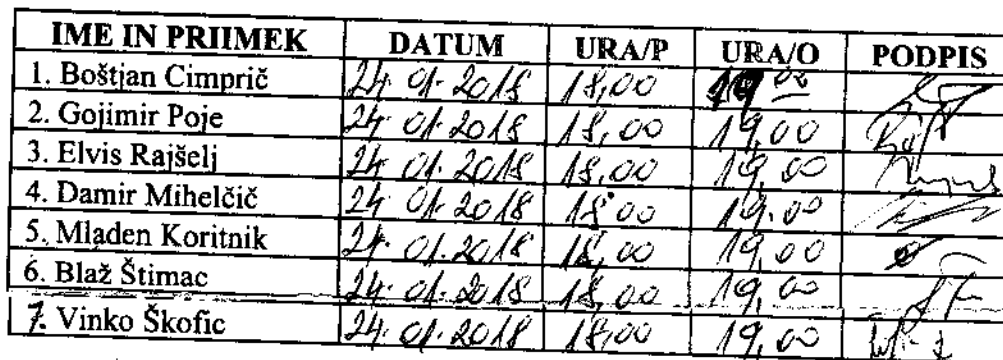 IME IN PRIIMEK DATUM URA/P URA/O PODPIS
1. Boštjan Cimprič 24. 01. 2018 18,00 19 00
2. Gojimir Poje 24. 01. 2018 18,00 19,00
3. Elvis Rajšelj 24. 01. 2018 18,00 19,00
4. Damir Mihelčič 24. 01. 2018 18.00 19.00
5. Mladen Koritnik 24. 01. 2018 18,00 19,00
6. Blaž Štimac 24. 01. 2018 18,00 19,00
7. Vinko Škofic 24. 01. 2018 18,00 19,00